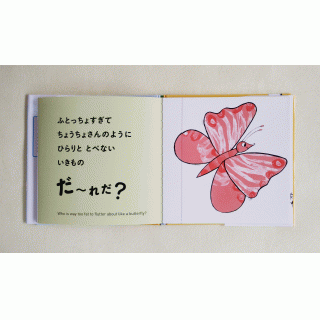 ふとっちょすぎて
ちょうちょさんのように
ひらりと とべない
いきもの
だ〜れだ？
Who is way too fat to flutter about like a butterfly?